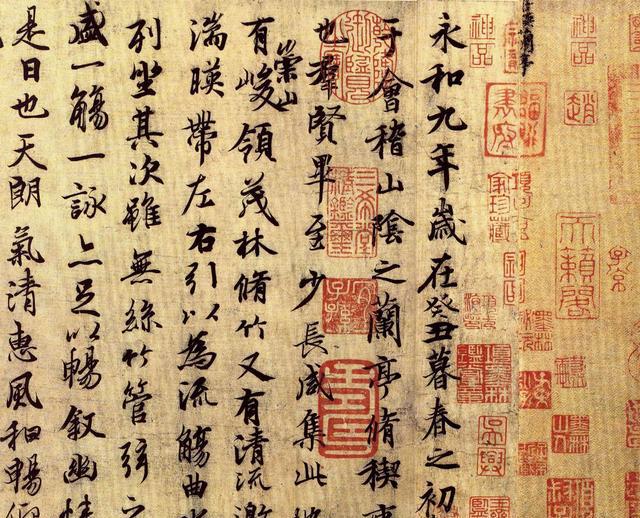 神品
趙
天籟閣
子京
神品
永和九年歲在癸丑暮春之初
于會稽山陰之蘭亭脩稧事
也羣賢畢至少長咸集此地
有崇山峻領茂林脩竹又有清流激
湍暎帶左右引以為流觴曲水
列坐其次雖無絲竹管弦之
盛一觴一詠亦足以暢敘幽情
是日也天朗氣清惠風和暢仰